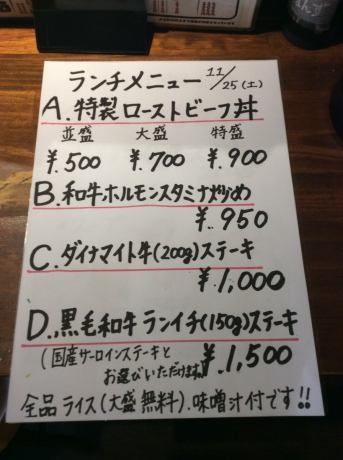 ランチメニュー 11/25(土)
A.特製ローストビーフ丼
並盛 大盛 特盛
¥.500 ¥.700 ¥.900
B.和牛ホルモンスタミナ炒め
¥.950
C.ダイナマイト牛(200g)ステーキ
¥.1,000
D.黒毛和牛ランイチ(150g)ステーキ
(国産サーロインステーキと
お選びいただけます。
¥.1,500
全品ライス(大盛無料).味噌汁付です!!